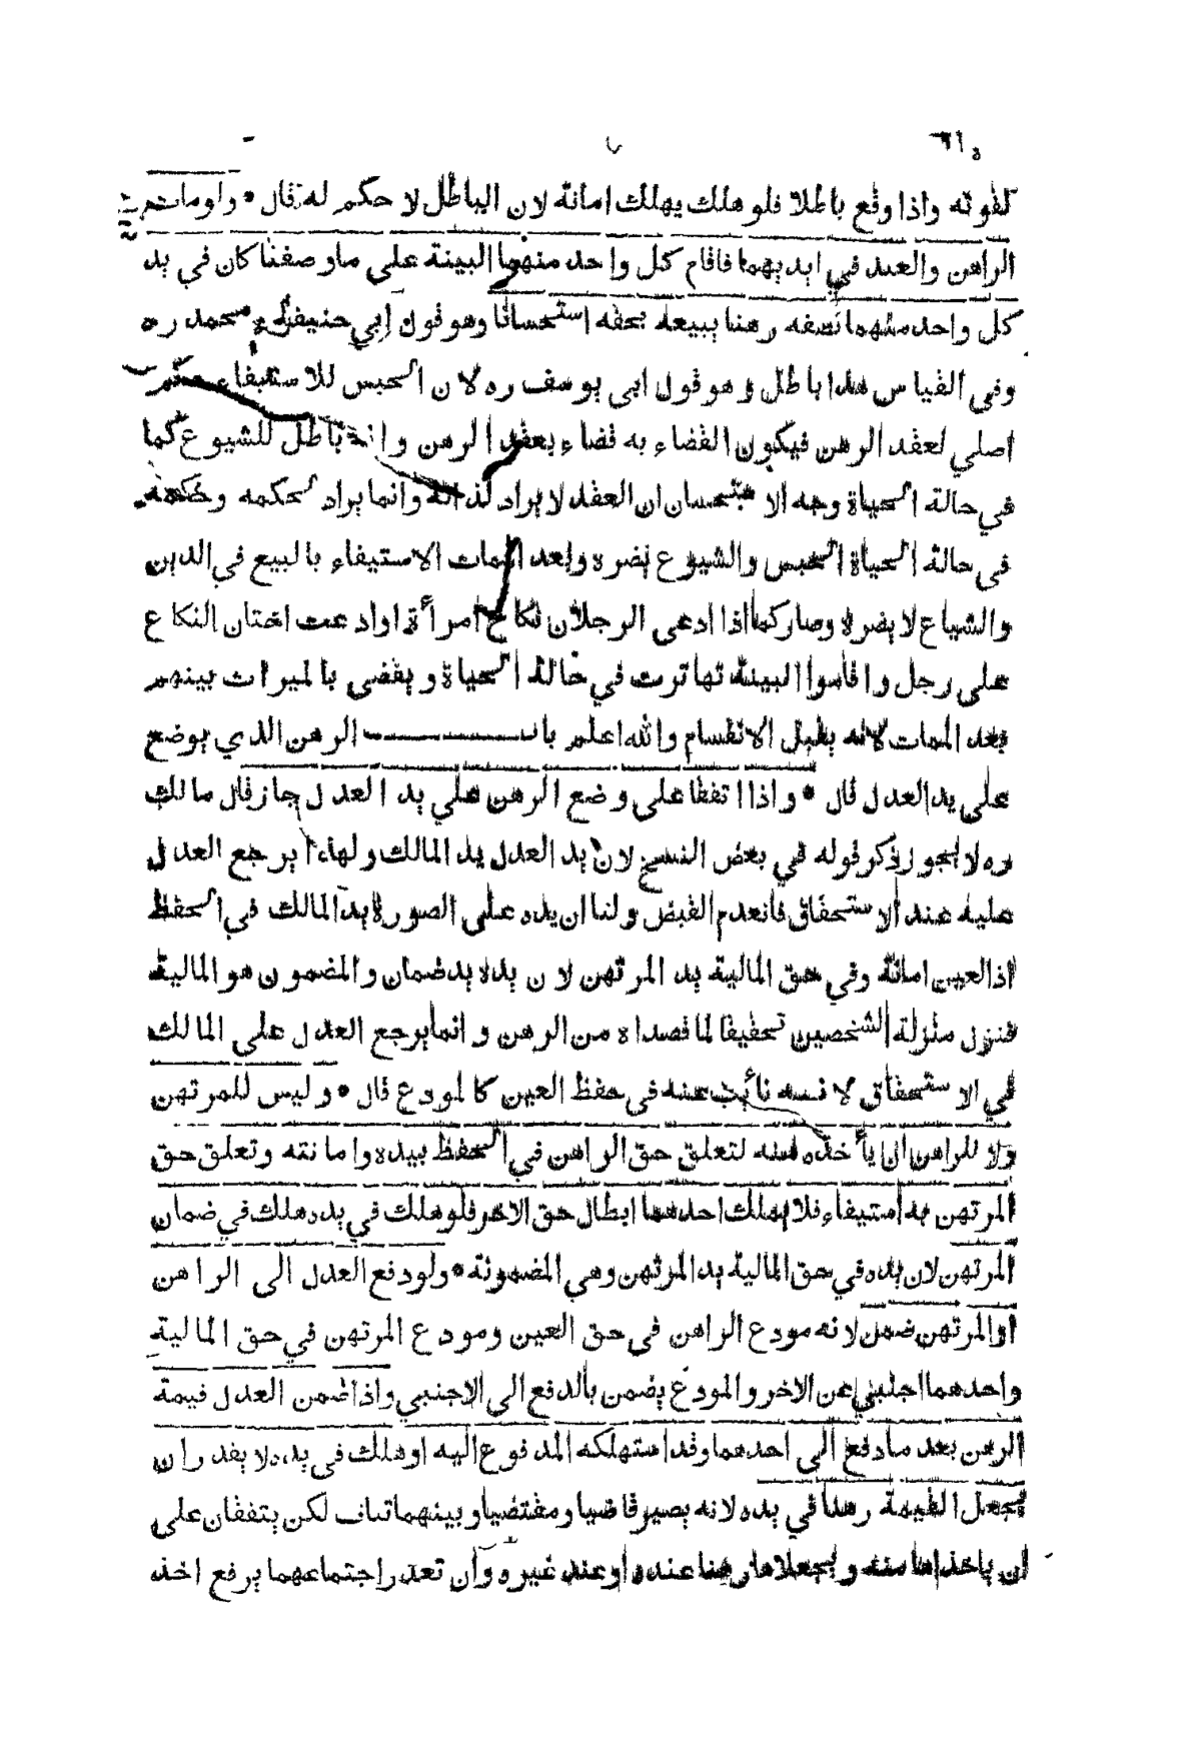 ٦١٥
لفوته واذا وقع باطلا فلو هلك يهلك امانة لان الباطل لا حكم له قال * ولو مات
الراهن والعبد في ايديهما فاقام كل واحد منهما البينة على ما وصفنا كان في يد
كل واحد منهما نصفه رهنا يبيعه بحقه استحسانا وهو قول ابي حنيفة ومحمد ره
وفي القياس هذا باطل وهو قول ابي يوسف ره لان الحبس للاستيفاء حكم
اصلي لعقد الرهن فيكون القضاء به قضاء بعقد الرهن وانه باطل للشيوع كما
في حالة الحياة وجه الاستحسان ان العقد لا يراد لذاته وانما يراد لحكمه وحكمه
في حالة الحياة الحبس والشيوع يضره وبعد الممات الاستيفاء بالبيع في الدين
والشياع لا يضره وصار كما اذا ادعى الرجلان نكاح امرأة او ادعت اختان النكاع
على رجل واقاموا البينة تهاترت في حالة الحياة ويقضى بالميراث بينهم
بعد الممات لانه يقبل الانقسام والله اعلم باب الرهن الذي يوضع
على يد العدل قال * واذا اتفقا على وضع الرهن على يد العدل جاز قال مالك
ره لا يجوز ذكر قوله في بعض النسخ لان يد العدل يد المالك ولهذا يرجع العدل
عليه عند الاستحقاق فانعدم القبض ولنا ان يده على الصورة يد المالك في الحفظ
اذ العين امانة وفي حق المالية يد المرتهن لان يده يد ضمان والمضمون هو المالية
فنزل منزلة الشخصين تحقيقا لما قصداه من الرهن وانما يرجع العدل على المالك
في الاستحقاق لانه نائب عنه في حفظ العين كالمودع قال * وليس للمرتهن
ولا للراهن ان يأخذه منه لتعلق حق الراهن في الحفظ بيده وامانته وتعلق حق
المرتهن به استيفاء فلا يملك احدهما ابطال حق الاخر فلو هلك في يده هلك في ضمان
المرتهن لان يده في حق المالية يد المرتهن وهي المضمونة * ولو دفع العدل الى الراهن
او المرتهن ضمن لانه مودع الراهن في حق العين ومودع المرتهن في حق المالية
واحدهما اجنبي عن الاخر والمودع يضمن بالدفع الى الاجنبي واذا ضمن العدل قيمة
الرهن بعد ما دفع الى احدهما وقد استهلكه المدفوع اليه او هلك في يده لا يقدر ان
يجعل القيمة رهنا في يده لانه يصير قاضيا ومقتضيا وبينهما تناف لكن يتفقان على
ان ياخذاها منه ويجعلاها رهنا عنده او عند غيره وان تعذر اجتماعهما يرفع احد